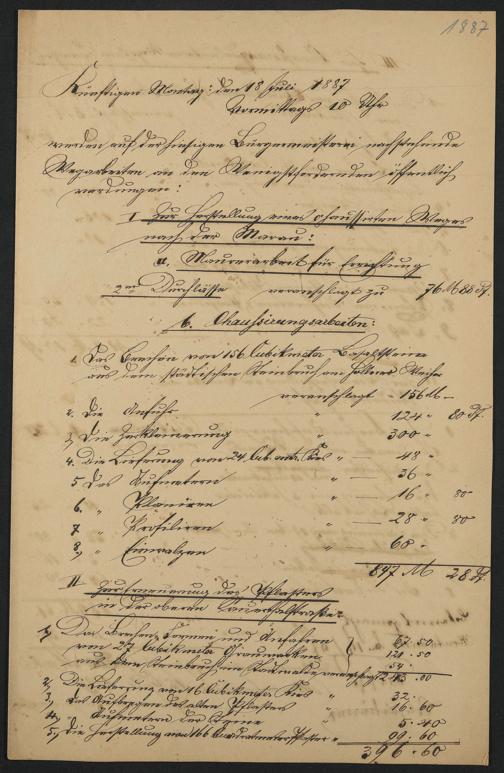 1887
Künftigen Montag: den 18 Juli 1887
Vormittags 10 Uhr
werden auf der hiesigen Bürgermeisterei nachstehende
Wegarbeiten an den Wenigstfordernden öffentlich
verdungen:
I zur Herstellung eines chaussirten Weges
nach der Marau:
a. Maurerarbeit für Errichtung
2er Durchlässe veranschlagt zu 76 M 80 Pf.
b. Chaussirungsarbeiten:
1. Das Brechen von 156 Cubikmeter Basaltsteine
aus dem städtischen Steinbruch am
veranschlagt 156 M —
2. Die Anfuhr " 124 " 80 Pf.
3, Die Zerkleinerung " 300 "
4. Die Lieferung von 24 Cub. mtr. Kies " — 48 "
5 Das Aufmetern " — 36 "
6, " Planiren " — 16 " 80
7 " Profiliren " — 28 " 80
8, " Einwalzen " — 60 "
847 M 28 Pf.
II zur Erneuerung des Pflasters
in der oberen
1, Das Brechen, Formen und Anfahren 67.50
von 27 Cubikmeter
aus dem Steinbruch im 54.
2, Die Lieferung von 16 Cubikmeter Kies " 32.
3, Das Aufbrechen des alten Pflasters " 16.60
4, " Aufmetern der Steine 5.40
5, Die Herstellung von 166 Quadratmeter Pflaster " 99.60
396.60